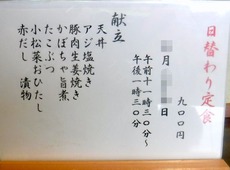 日替わり定食
九〇〇円
月 日
午前十一時三〇分〜
午後一時三〇分
献立
天丼
アジ塩焼き
豚肉生姜焼き
かぼちゃ旨煮
たこぶつ
小松菜おひたし
赤だし 漬物